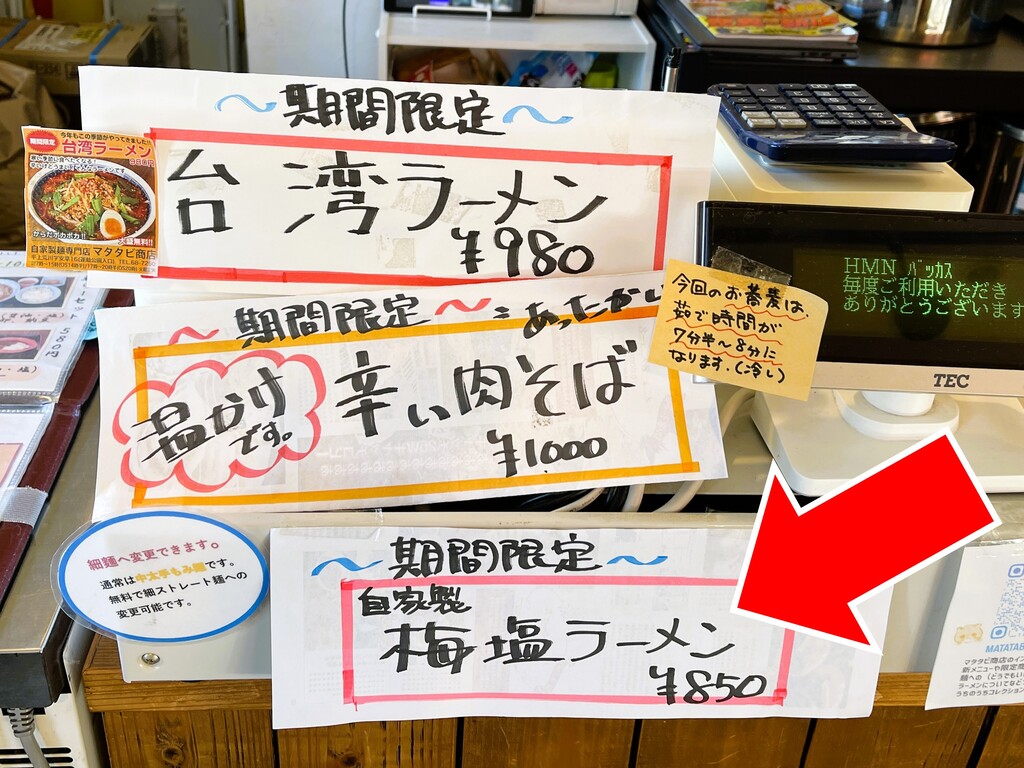 ~期間限定~
台湾ラーメン
¥980
期間限定
今年もこの季節がやってきました!!
台湾ラーメン
980円
寒い季節に食べたくなる!
大盛無料!!
自家製麺専門店 マタタビ商店
~期間限定~
あったかい
温かけ
です。
辛い肉そば
¥1000
今回のお蕎麦は、
茹で時間が
7分半~8分に
なります.(冷し)
HMN バッカス
毎度ご利用いただき
ありがとうございます
TEC
580円
細麺へ変更できます。
通常は中太手もみ麺です。
無料で細ストレート麺への
変更可能です。
~期間限定~
自家製
梅塩ラーメン
¥850
MATATAB
マタタビ商店のイン
新メニューや限定
麺への(どうでもい
ラーメンについてなど
うちのうちコレクション